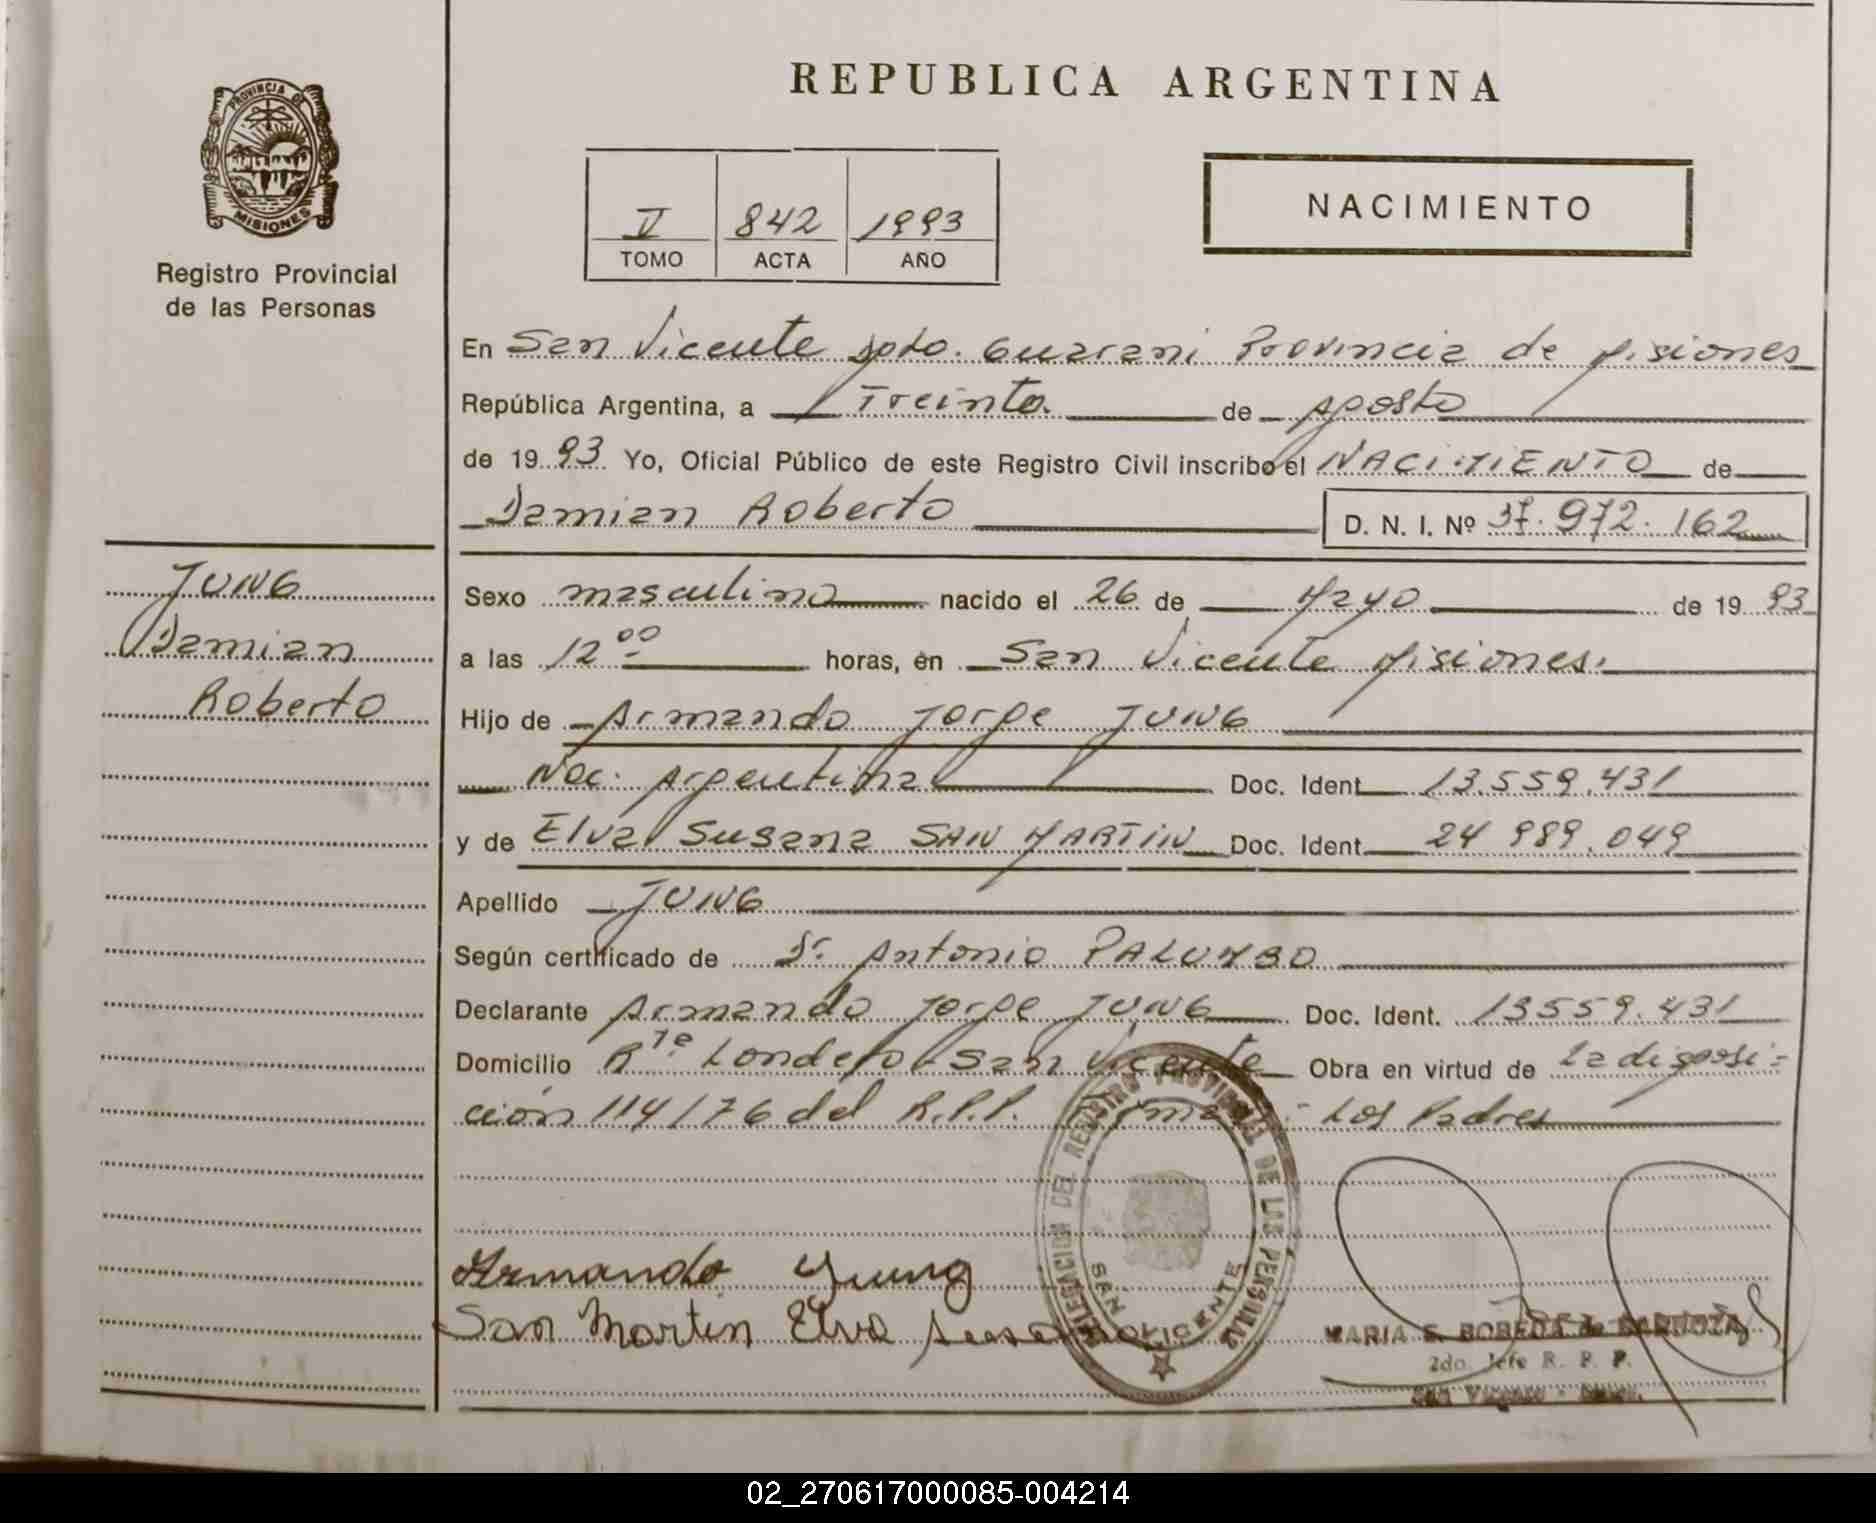 PROVINCIA DE
MISIONES
Registro Provincial
de las Personas
REPUBLICA ARGENTINA
V 842 1993
TOMO ACTA AÑO
NACIMIENTO
En San Vicente Dpto. Guarani Provincia de Misiones
República Argentina, a Treinta de Agosto
de 1993 Yo, Oficial Público de este Registro Civil inscribo el NACIMIENTO de
Damian Roberto D. N. I. Nº 37.972.162
JUNG
Damian
Roberto
Sexo masculino nacido el 26 de Mayo de 1993
a las 12 00 horas, en San Vicente Misiones.
Hijo de Armando Jorge JUNG
Nac. Argentina Doc. Ident. 13.559.431
y de Elva Susana SAN MARTIN Doc. Ident. 24 989.049
Apellido JUNG
Según certificado de Dr. Antonio PALUMBO
Declarante Armando Jorge JUNG Doc. Ident. 13559.431
Domicilio San Vicente Obra en virtud de la disposi-
ción 114/76 del R.P.P. Los Padres
Armando Yung
San Martin Elva Susana
DELEGACION DEL REGISTRO PROVINCIAL DE LAS PERSONAS
SAN VICENTE
MARIA S.
2do. Jefe R. P. P.
San Vicente
02_270617000085-004214